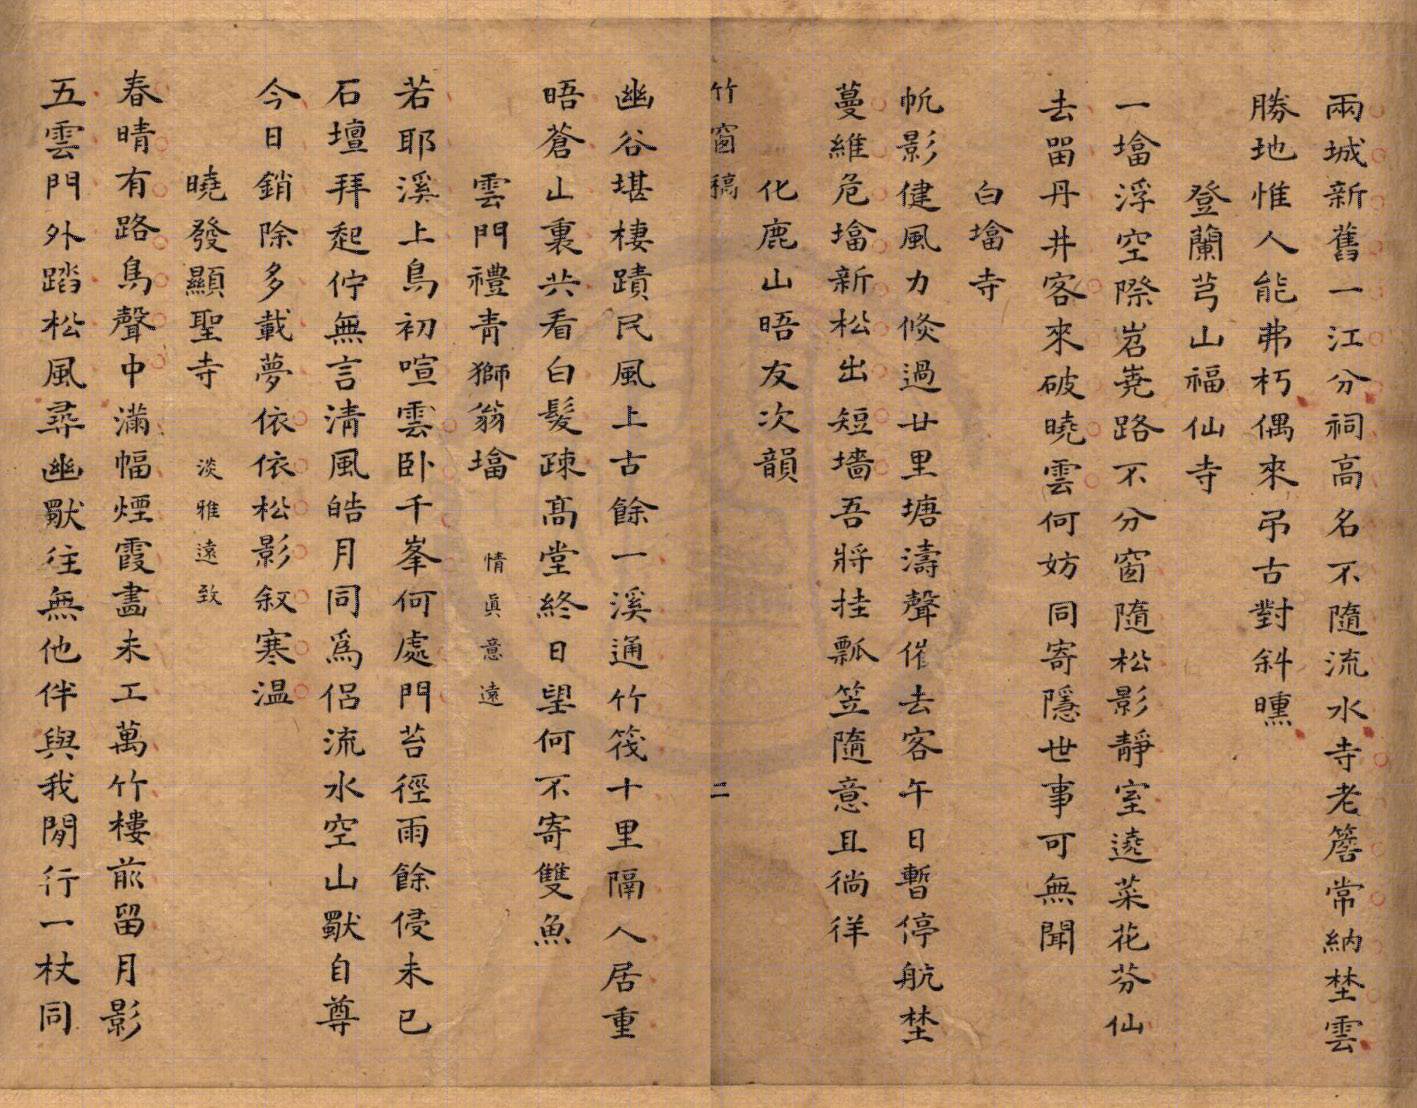 兩城新舊一江分祠高名不隨流水寺老簷常納埜雲
勝地惟人能弗朽偶來弔古對斜曛
登蘭芎山福仙寺
一墖浮空際岩嶤路不分窗隨松影靜室遶菜花芬仙
去畱丹井客來破曉雲何妨同寄隱世事可無聞
白墖寺
帆影健風力倐過廿里塘濤聲催去客午日暫停航埜
蔓維危墖新松出短墻吾將挂瓢笠隨意且徜徉
化鹿山晤友次韻
竹窗稿
二
幽谷堪棲蹟民風上古餘一溪通竹筏十里隔人居重
晤蒼山裏共看白髮疎髙堂終日望何不寄雙魚
雲門禮青獅翁墖 情眞意遠
若耶溪上鳥初喧雲卧千峯何處門苔徑雨餘侵未已
石壇拜起佇無言清風皓月同爲侶流水空山獸自尊
今日銷除多載夢依依松影叙寒温
曉發顯聖寺 淡雅遠致
春晴有路鳥聲中滿幅煙霞畵未工萬竹樓前留月影
五雲門外踏松風尋幽獸往無他伴與我閒行一杖同